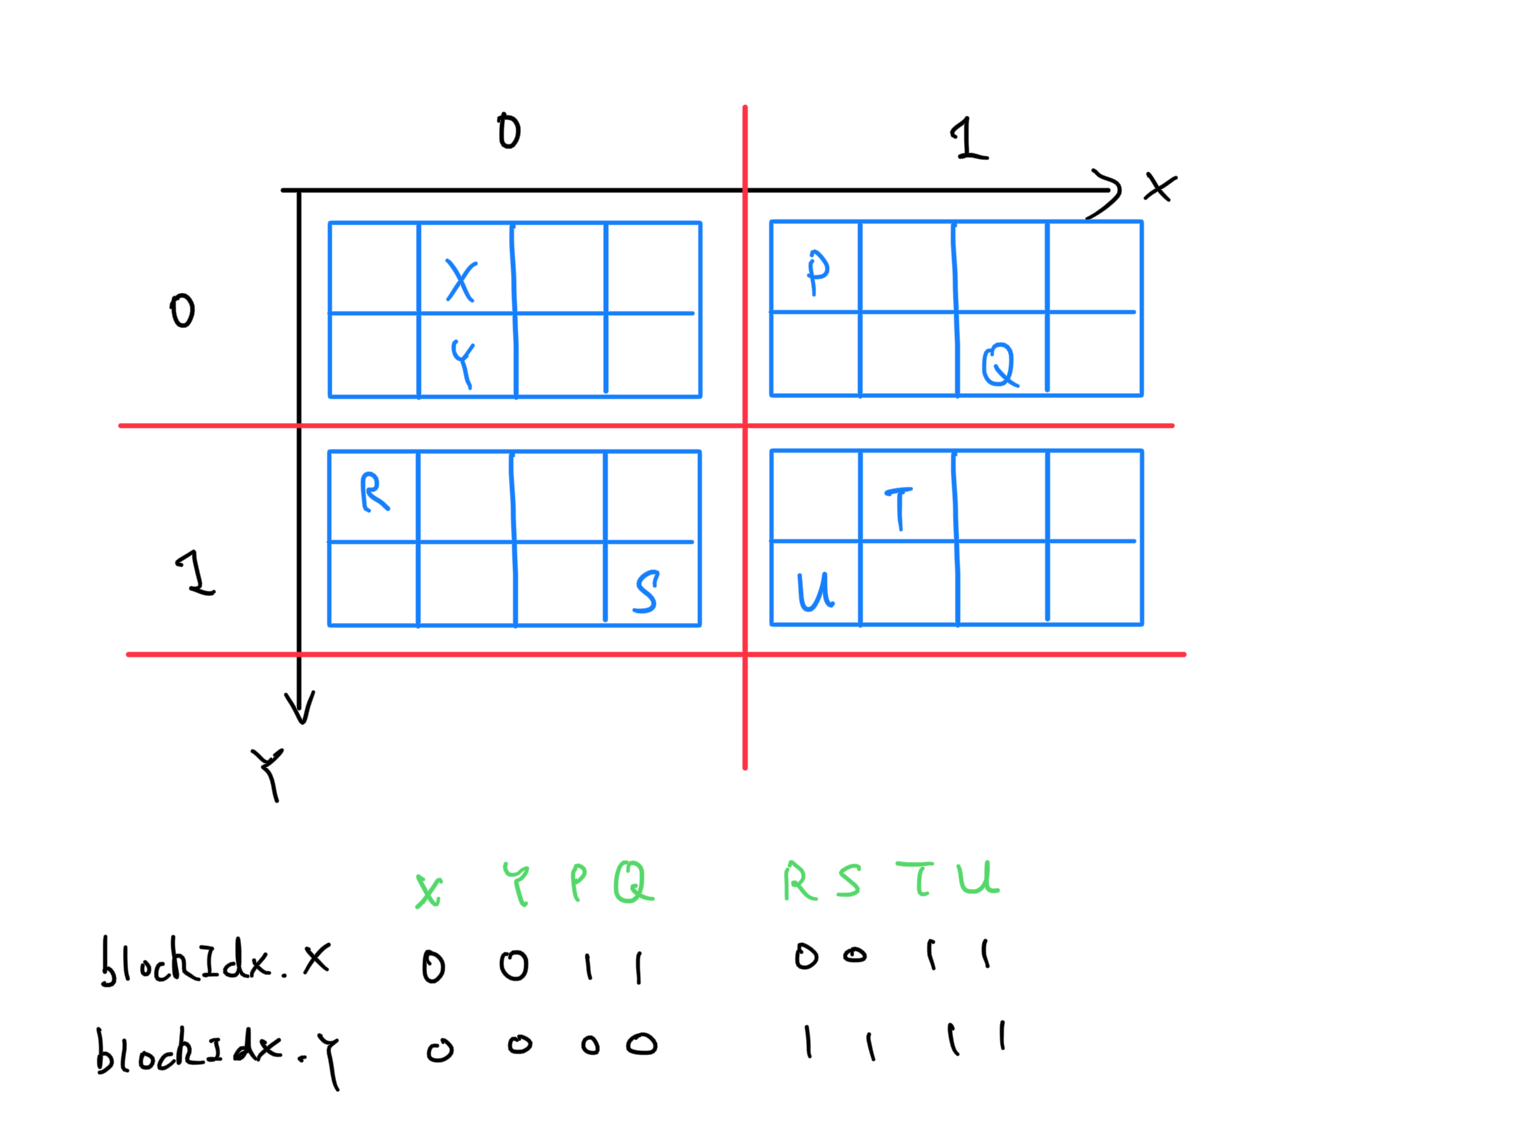 0 1
X
0 X P
Y Q
R T
1 S U
Y
X Y P Q R S T U
blockIdx.X 0 0 1 1 0 0 1 1
blockIdx.Y 0 0 0 0 1 1 1 1